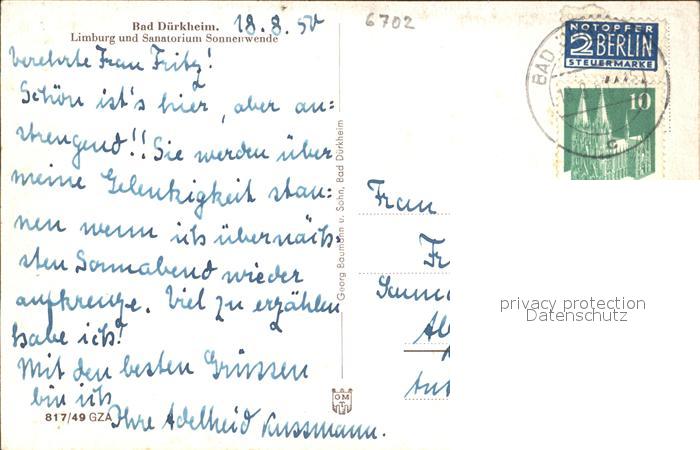 Bad Dürkheim.
Limburg und Sanatorium Sonnenwende
18. 8. 50
6702
verehrte Frau Fritz!
Schön ist's hier, aber an=
strengend!! Sie werden über
meine Gelenkigkeit stau=
nen wenn ich übernäch=
sten Sonnabend wieder
aufkreuze. Viel zu erzählen
habe ich!
Mit den besten Grüssen
bin ich
Ihre Adelheid Kussmann.
817/49 GZA
Georg Baumann u. Sohn, Bad Dürkheim
GM
NOTOPFER
2 BERLIN
STEUERMARKE
BAD
c
10
Frau
Fr
privacy protection
Datenschutz